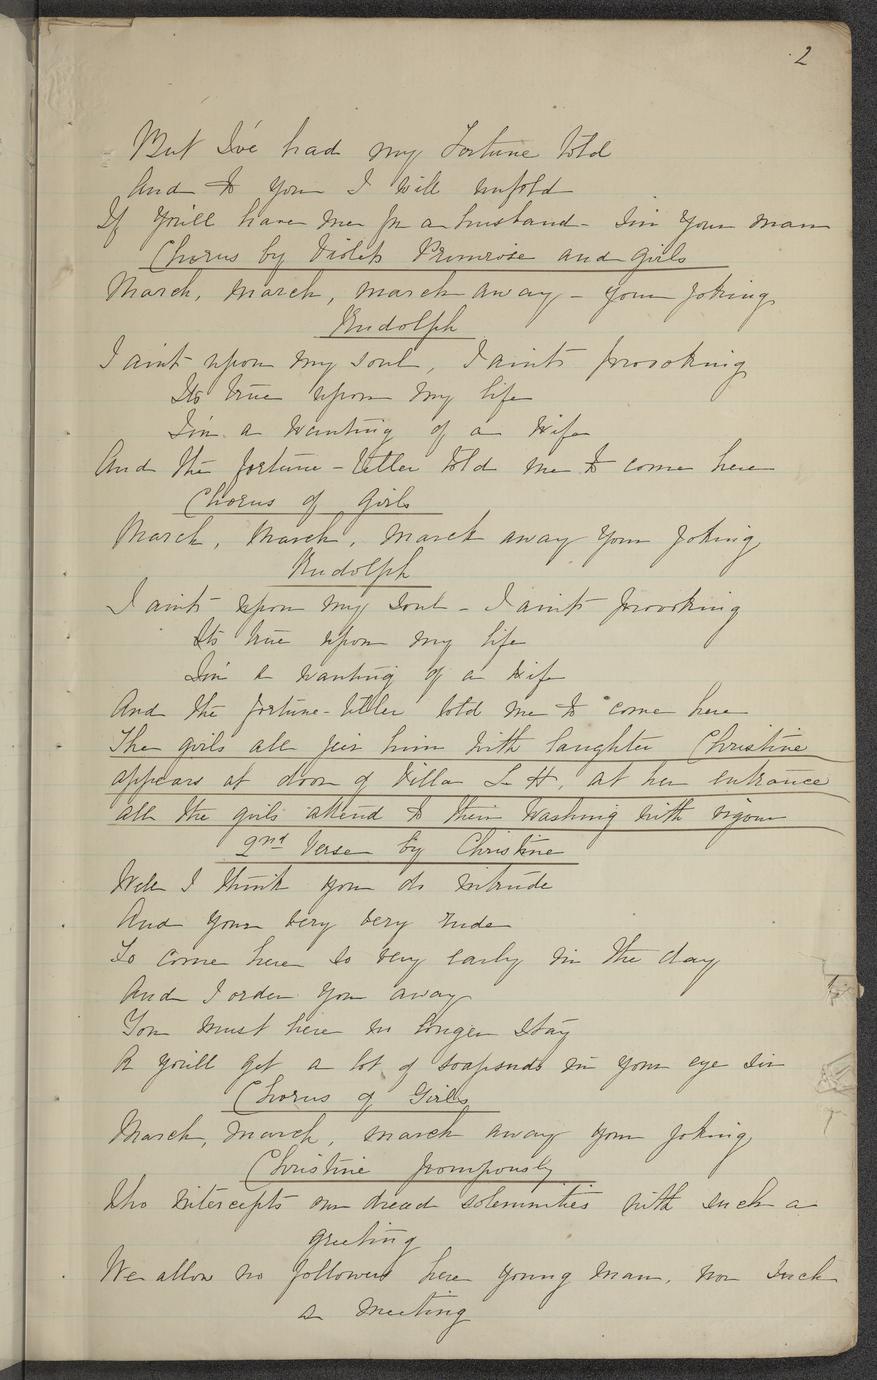 2
But I've had my Fortune told
And to you I will unfold
If you'll have me for a husband - I'm your man
Chorus by Violet Primrose and girls
March, march, march away - your joking
Rudolph
I aint upon my soul, I aint provoking
Its true upon my life
I'm a wanting of a wife
And the fortune-teller told me to come here
Chorus of Girls
March, March, march away your joking
Rudolph
I aint upon my soul - I aint provoking
Its true upon my life
I'm a wanting of a wife
And the fortune-teller told me to come here
The girls all jeer him with laughter Christine
appears at door of Villa L. H. at her entrance
all the girls attend to their washing with vigour
2nd Verse by Christine
Well I think you do intrude
And your very very rude
To come here so very early in the day
And I order you away
You must here no longer stay
Or you'll get a lot of soapsuds in your eye Sir
Chorus of Girls
March, March, march away your joking
Christine pompously
Who intercepts our dread solemnities with such a
greeting
We allow no followers here young man, nor such
a meeting